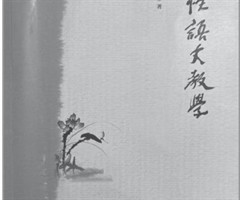 語文教學